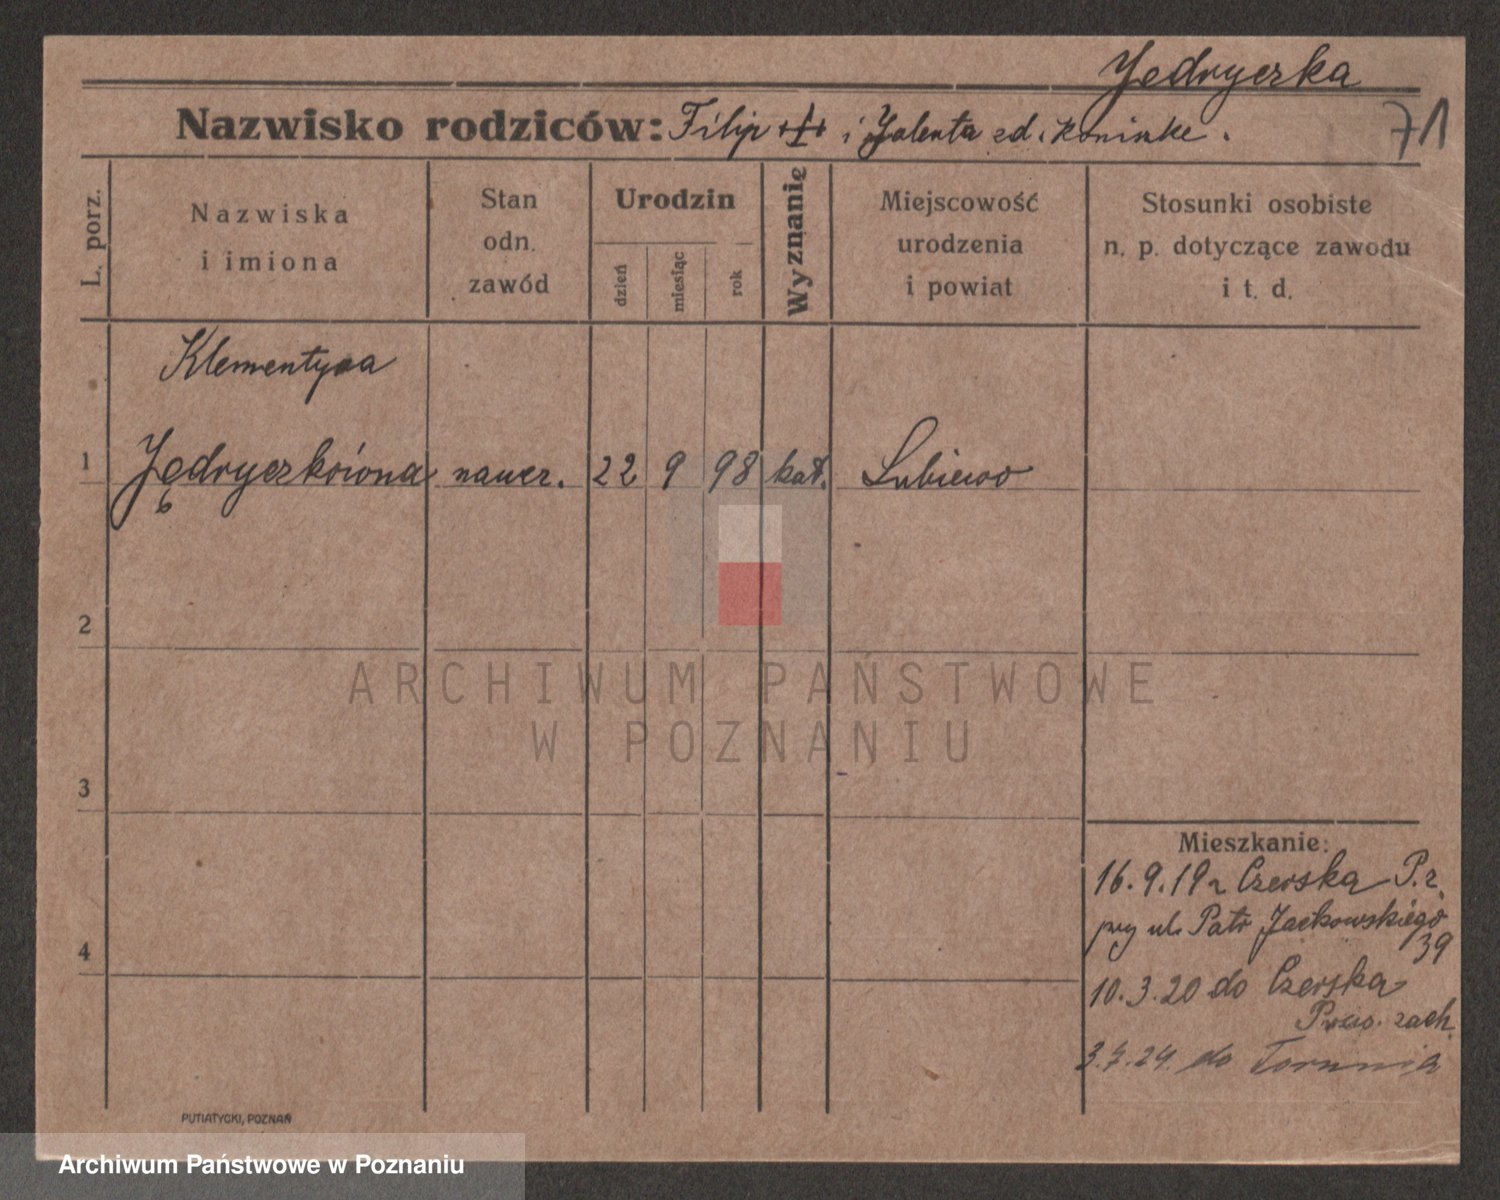 Jędryczka
71
Nazwisko rodziców: Filip i Jolenta zd.
L. porz.
Nazwiska
i imiona
Stan
odn.
zawód
Urodzin
dzień
miesiąc
rok
Wyznanię
Miejscowość
urodzenia
i powiat
Stosunki osobiste
n. p. dotyczące zawodu
i t. d.
Klementyna
1 Jędryczkówna naucz. 22 9 98 kat. Lubiewo
2
ARCHIWUM PAŃSTWOWE
W POZNANIU
3
Mieszkanie:
16.9.19 z Czerska P.z.
przy ul. Patr Jackowskiego
39
4
10.3.20 do Czerska
Prus. zach.
do Torunia
PUTIATYCKI, POZNAŃ
Archiwum Państwowe w Poznaniu